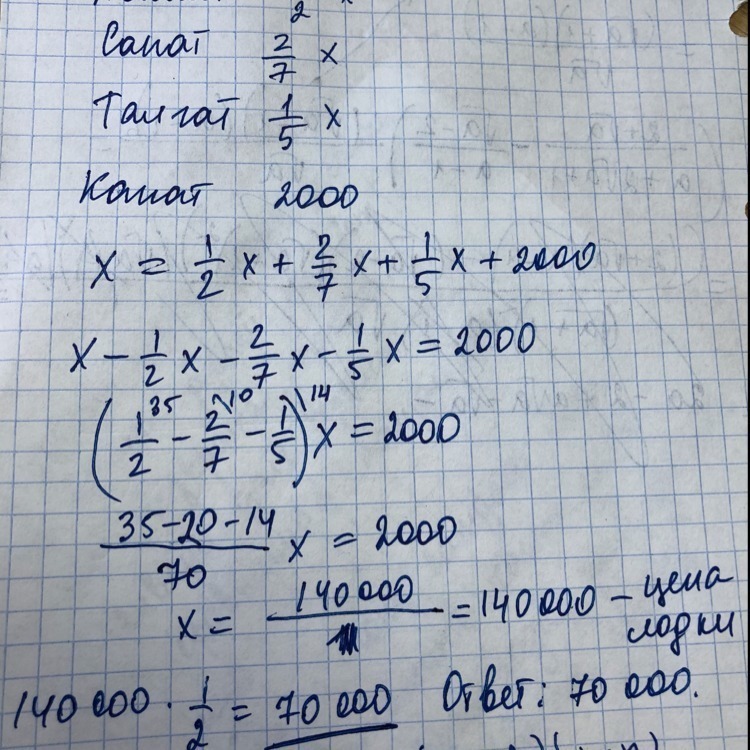 2
Санат 2/7 x
Талгат 1/5 x
Канат 2000
x = 1/2 x + 2/7 x + 1/5 x + 2000
x - 1/2 x - 2/7 x - 1/5 x = 2000
(1/2 \35 - 2/7 \10 - 1/5 \14) x = 2000
(35-20-14)/70 x = 2000
x = 140 000/1 = 140 000 - цена лодки
140 000 · 1/2 = 70 000 Ответ: 70 000.